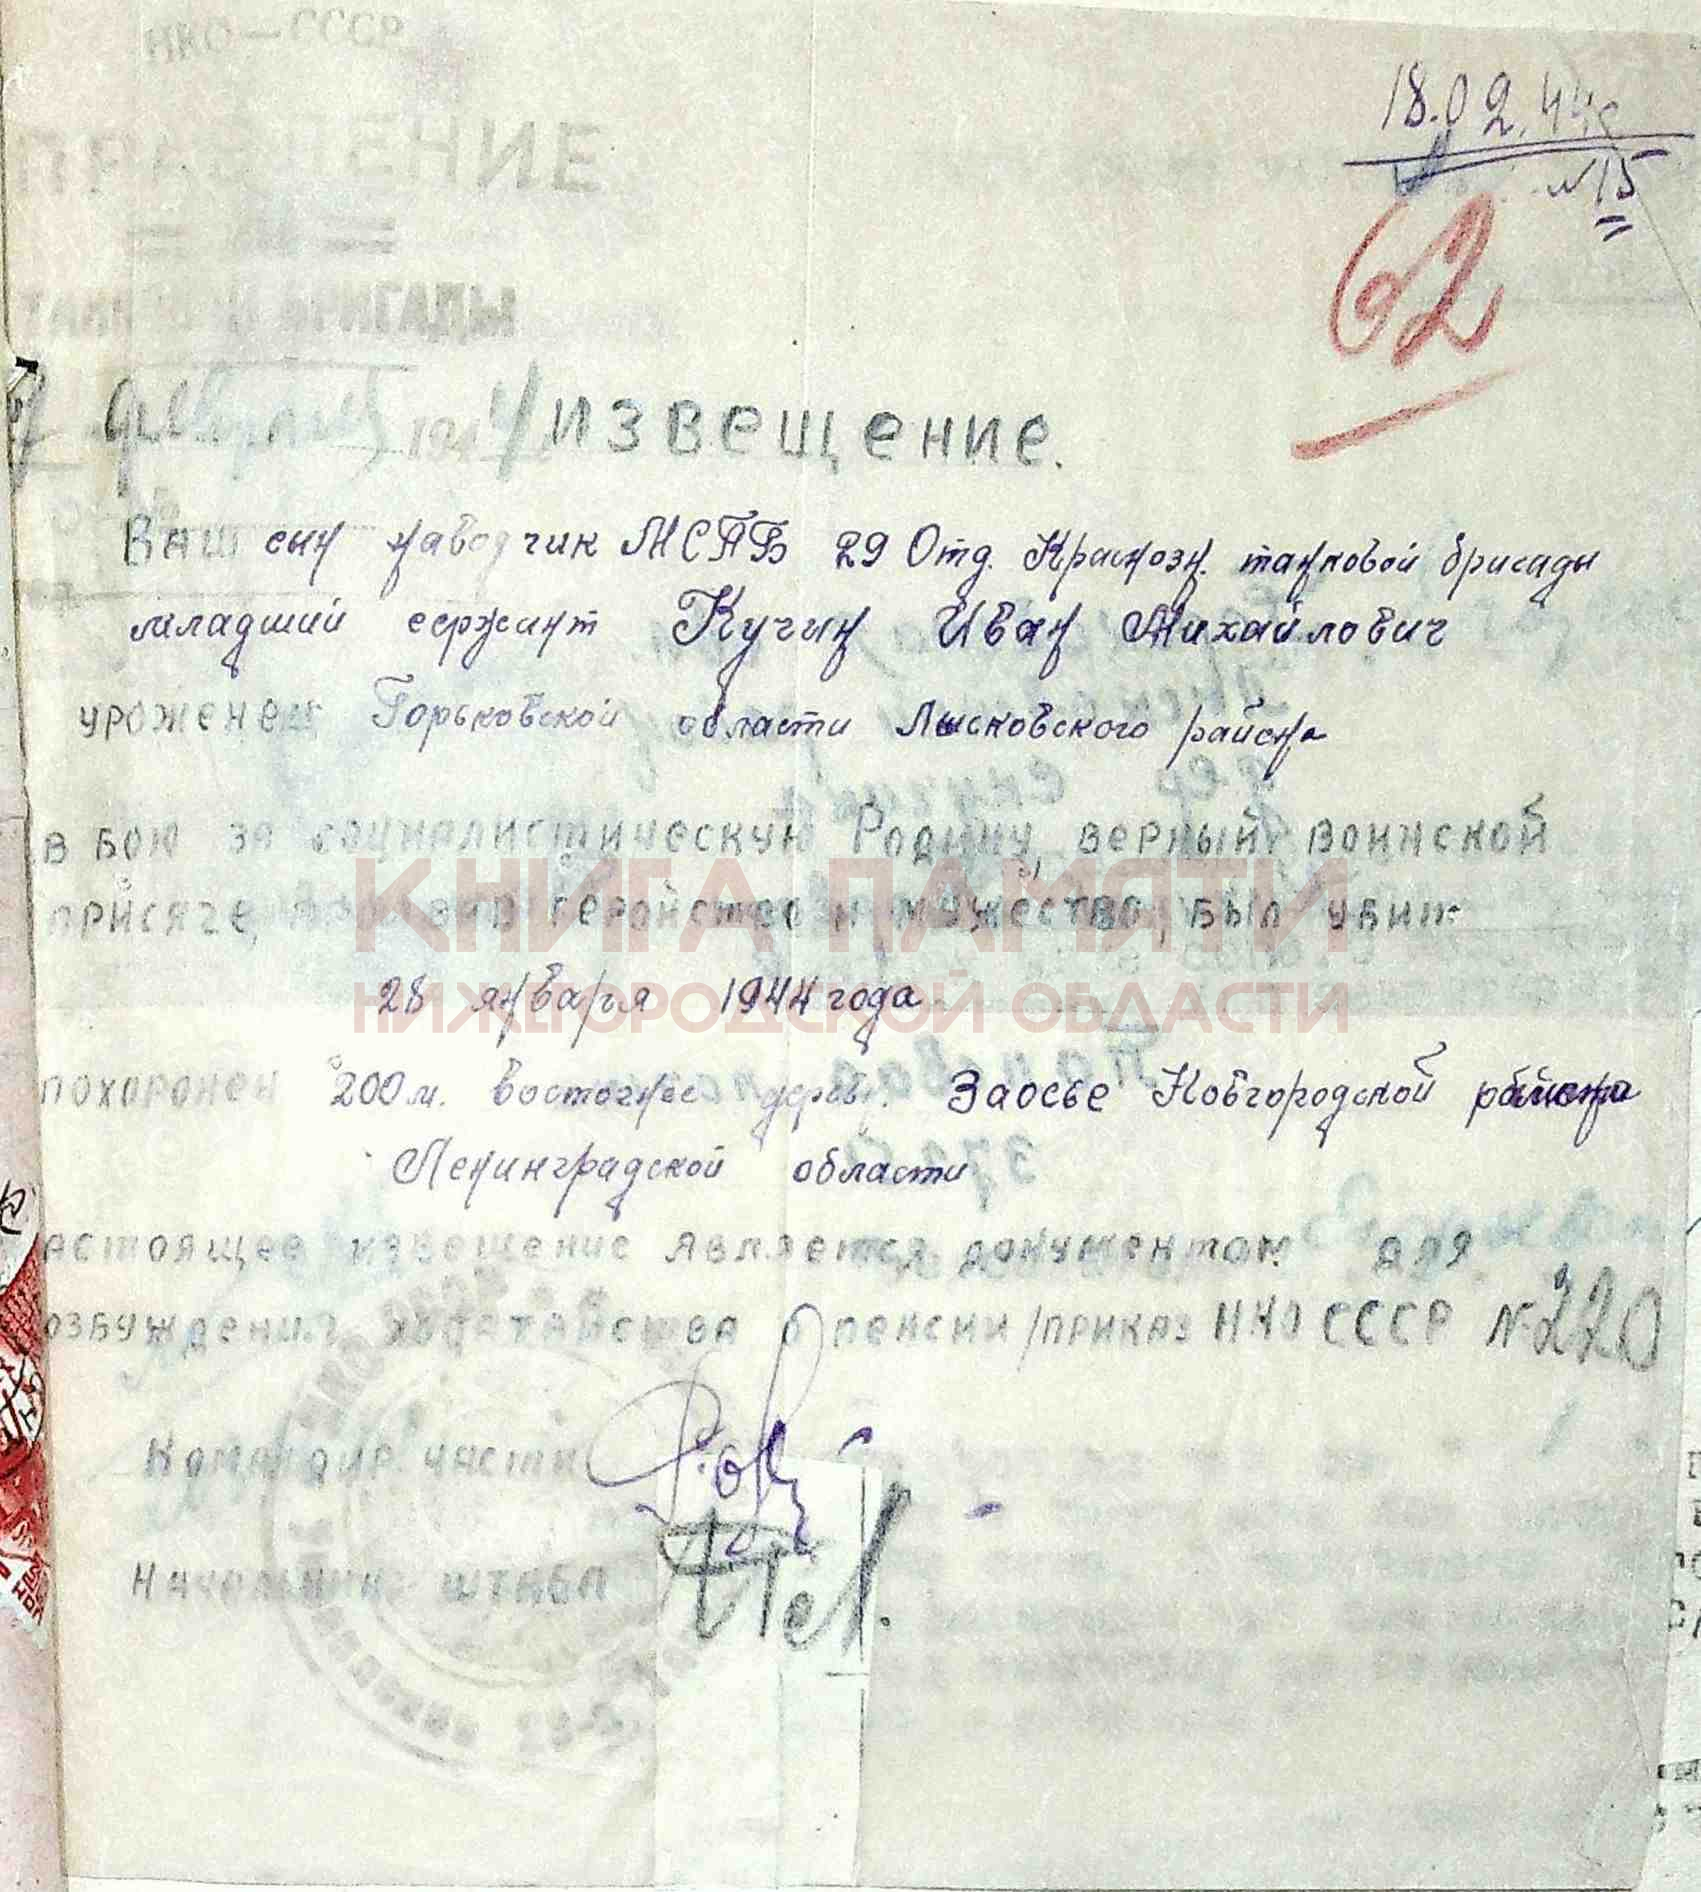 НКО-СССР
18.02.44г
N15
62
ТАНКОВОЙ БРИГАДЫ
7 февраля 1944
ИЗВЕЩЕНИЕ.
Ваш сын наводчик МСПБ 29 Отд. Краснозн. танковой бригады
младший сержант Кучин Иван Михайлович
уроженец Горьковской области Лысковского района
в бою за социалистическую Родину, верный воинской
присяге, проявив геройство и мужество, был убит
КНИГА ПАМЯТИ
НИЖЕГОРОДСКОЙ ОБЛАСТИ
28 января 1944 года
похоронен 200 м. восточнее дерев. Заосье Новгородской района
Ленинградской области
астоящее извещение является документом для
озбуждения ходатайства о пенсии /приказ НКО СССР №220
Командир части
Начальник штаба